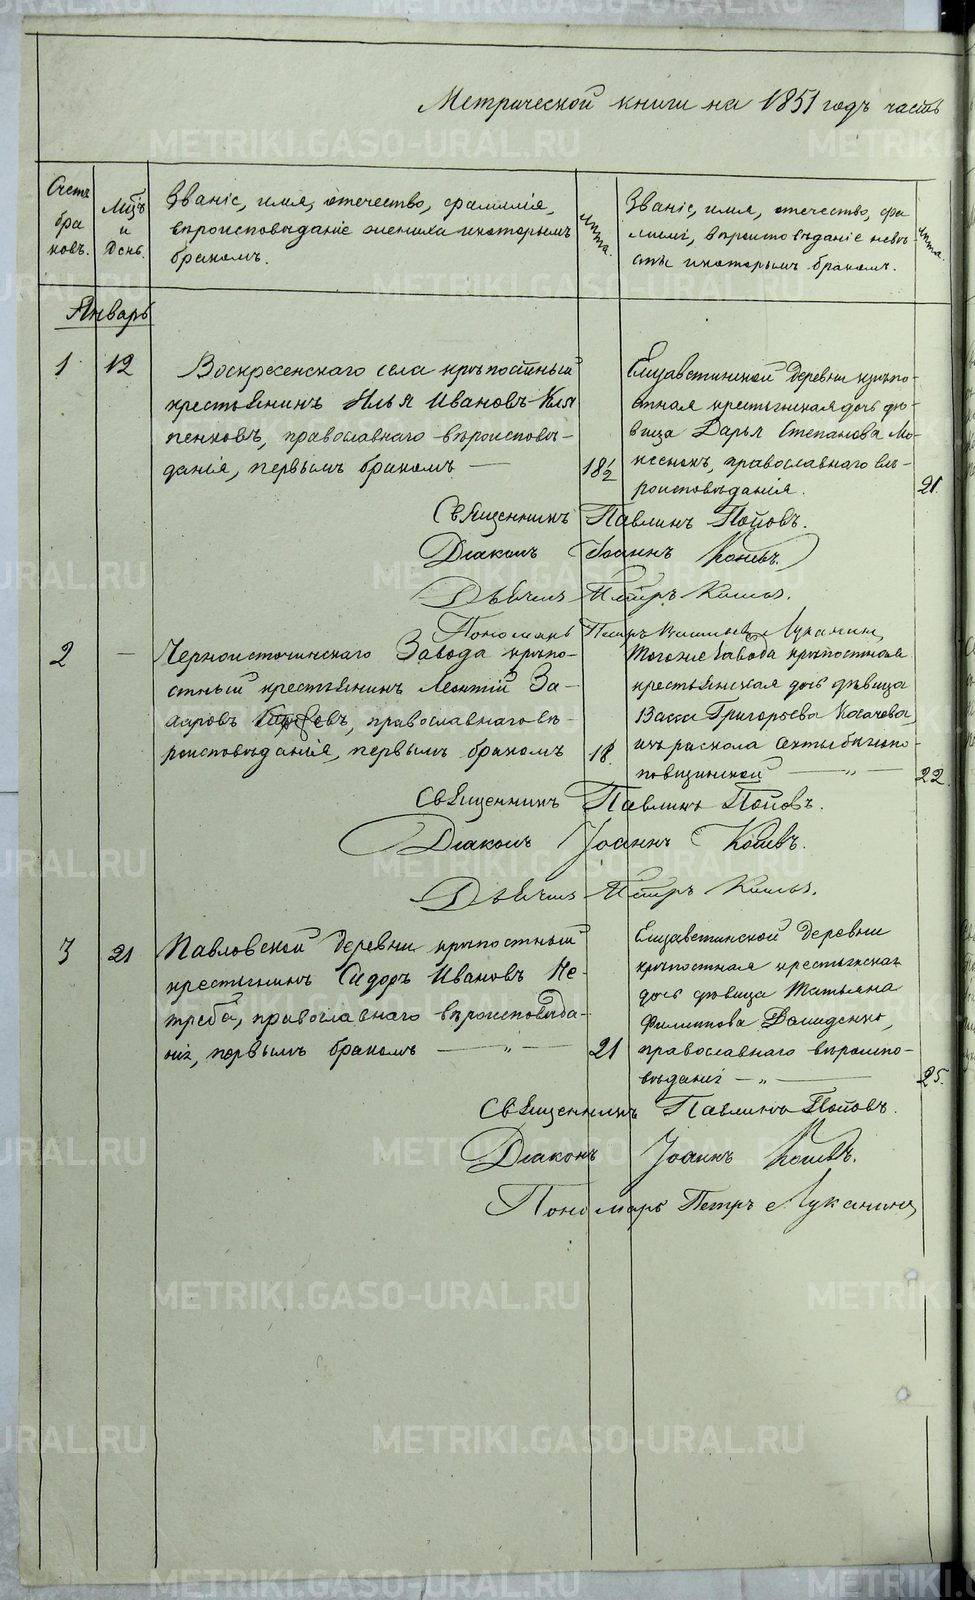 Метрической книги на 1851 годъ часть
Счетъ браковъ.
Мцъ и День.
Званіе, имя, отечество, фамилія,
вѣроисповѣданіе жениха и которымъ
бракомъ.
Лѣта.
Званіе, имя, отечество, фа-
милія, вѣроисповѣданіе невѣ-
сты и которымъ бракомъ.
Лѣта.
Январь
1 12
Воскресенскаго села крѣпостный
крестьянинъ Илья Ивановъ
православнаго вѣроисповѣ-
данія, первымъ бракомъ — 18½
Елизаветинской деревни крѣпо-
стная крестьянская дочь дѣ-
вица Дарья Степанова
православнаго вѣ-
роисповѣданія. 21.
Священникъ Павлинъ Поповъ.
Діаконъ Іоаннъ
Дьячекъ Петръ
Пономарь Петръ Луканинъ
2 —
Черноисточинскаго Завода крѣпо-
стный крестьянинъ Леонтій За-
харовъ православнаго вѣ-
роисповѣданія, первымъ бракомъ 18.
Тогоже Завода крѣпостная
крестьянская дочь дѣвица
Васса Григорьева Косачева,
изъ раскола секты бѣгло-
поповщинской — „ — 22.
Священникъ Павлинъ Поповъ.
Діаконъ Іоаннъ
Дьячекъ Петръ
3 21
Павловской деревни крѣпостный
крестьянинъ Сидоръ Ивановъ Не-
треба, православнаго вѣроисповѣда-
нія, первымъ бракомъ — „ — 21
Елизаветинской деревни
крѣпостная крестьянская
дочь дѣвица Татьяна
Филиппова Демиденко,
православнаго вѣроиспо-
вѣданія — „ — 25.
Священникъ Павлинъ Поповъ.
Діаконъ Іоаннъ
Пономарь Петръ Луканинъ
METRIKI.GASO-URAL.RU